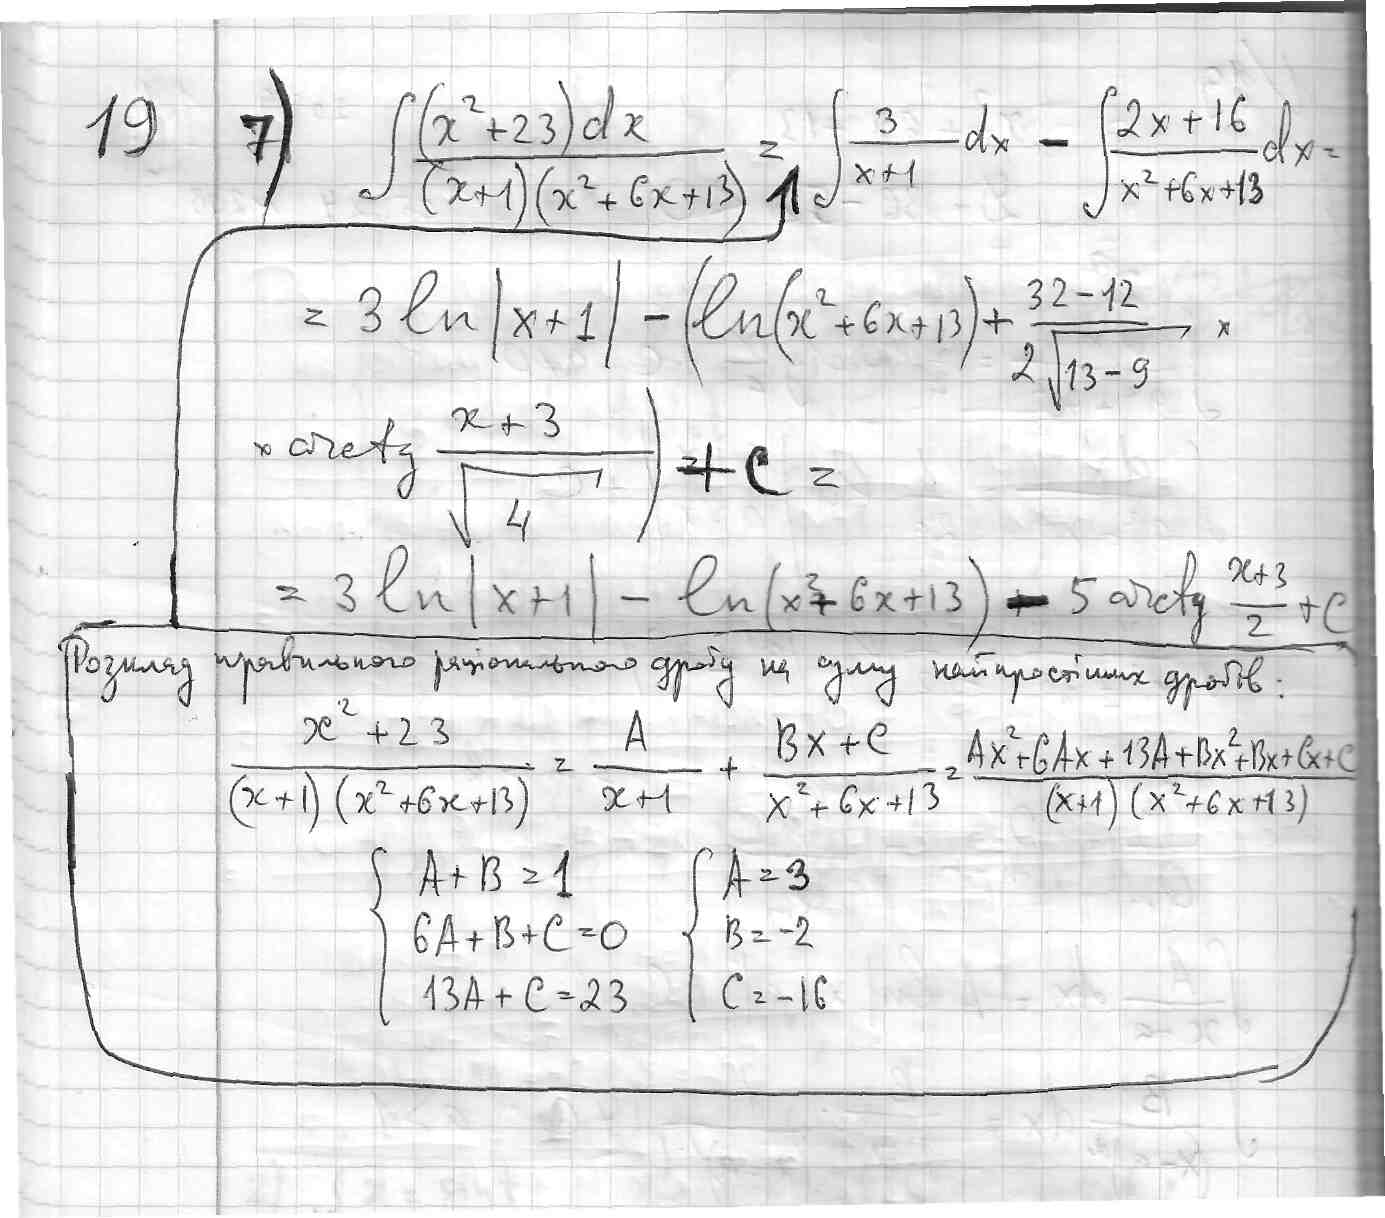 19 7) ∫ (x² + 23) dx / (x+1)(x² + 6x + 13) = ∫ 3/(x+1) dx − ∫ (2x + 16)/(x² + 6x + 13) dx =
= 3 ln |x + 1| − (ln(x² + 6x + 13) + (32 − 12)/(2√(13 − 9)) ×
× arctg (x + 3)/√4) + C =
= 3 ln |x+1| − ln (x² + 6x + 13) − 5 arctg (x+3)/2 + C
Розклад правильного раціонального дробу на суму найпростіших дробів:
(x² + 23)/((x+1)(x² + 6x + 13)) = A/(x+1) + (Bx + C)/(x² + 6x + 13) = (Ax² + 6Ax + 13A + Bx² + Bx + Cx + C)/((x+1)(x² + 6x + 13))
{ A + B = 1 { A = 3
6A + B + C = 0 B = −2
13A + C = 23 C = −16